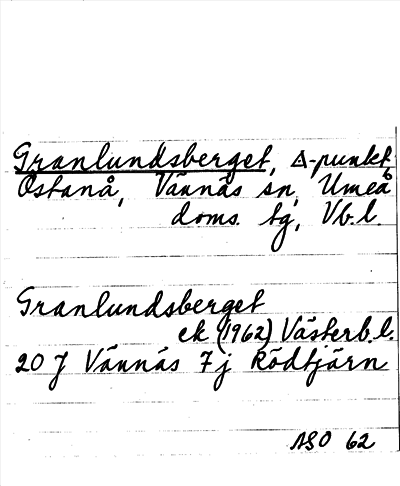 Granlundsberget, Δ-punkt
Östanå, Vännäs sn, Umeå
doms. tg, Vb.l.
Granlundsberget
ek (1962) Västerb.l.
20 J Vännäs 7j Rödtjärn
ASO 62